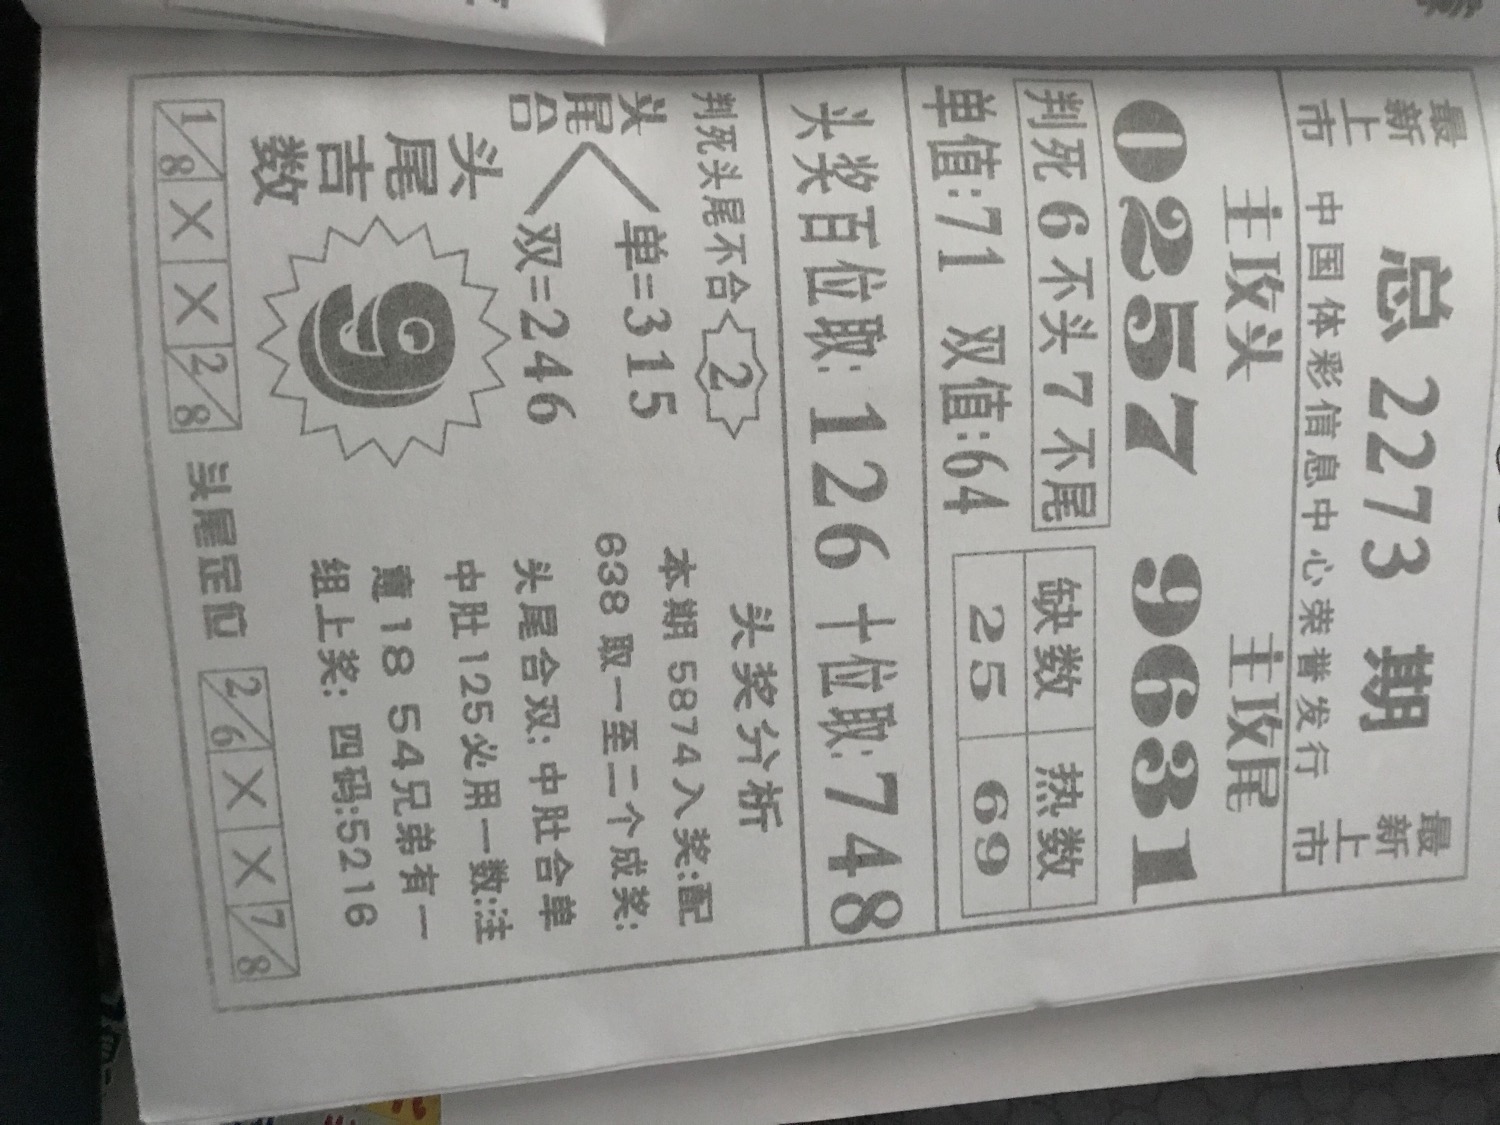 最新上市 总 2273 期 最新上市
中国体彩信息中心荣誉发行
主攻头 主攻尾
0257 9631
判死6不头7不尾
单值:71 双值:64
缺数 热数
25 69
头奖百位取:126 十位取:748
判死头尾不合 2
头尾合 单=315
双=246
头尾吉数 9
头奖分析
本期 5874入奖:配
638取一至二个成奖:
头尾合双:中肚合单
中肚125必用一数:注
意 18 54兄弟有一
组上奖: 四码:5216
1/8 X X 2/8 头尾定位 2/6 X X 7/8